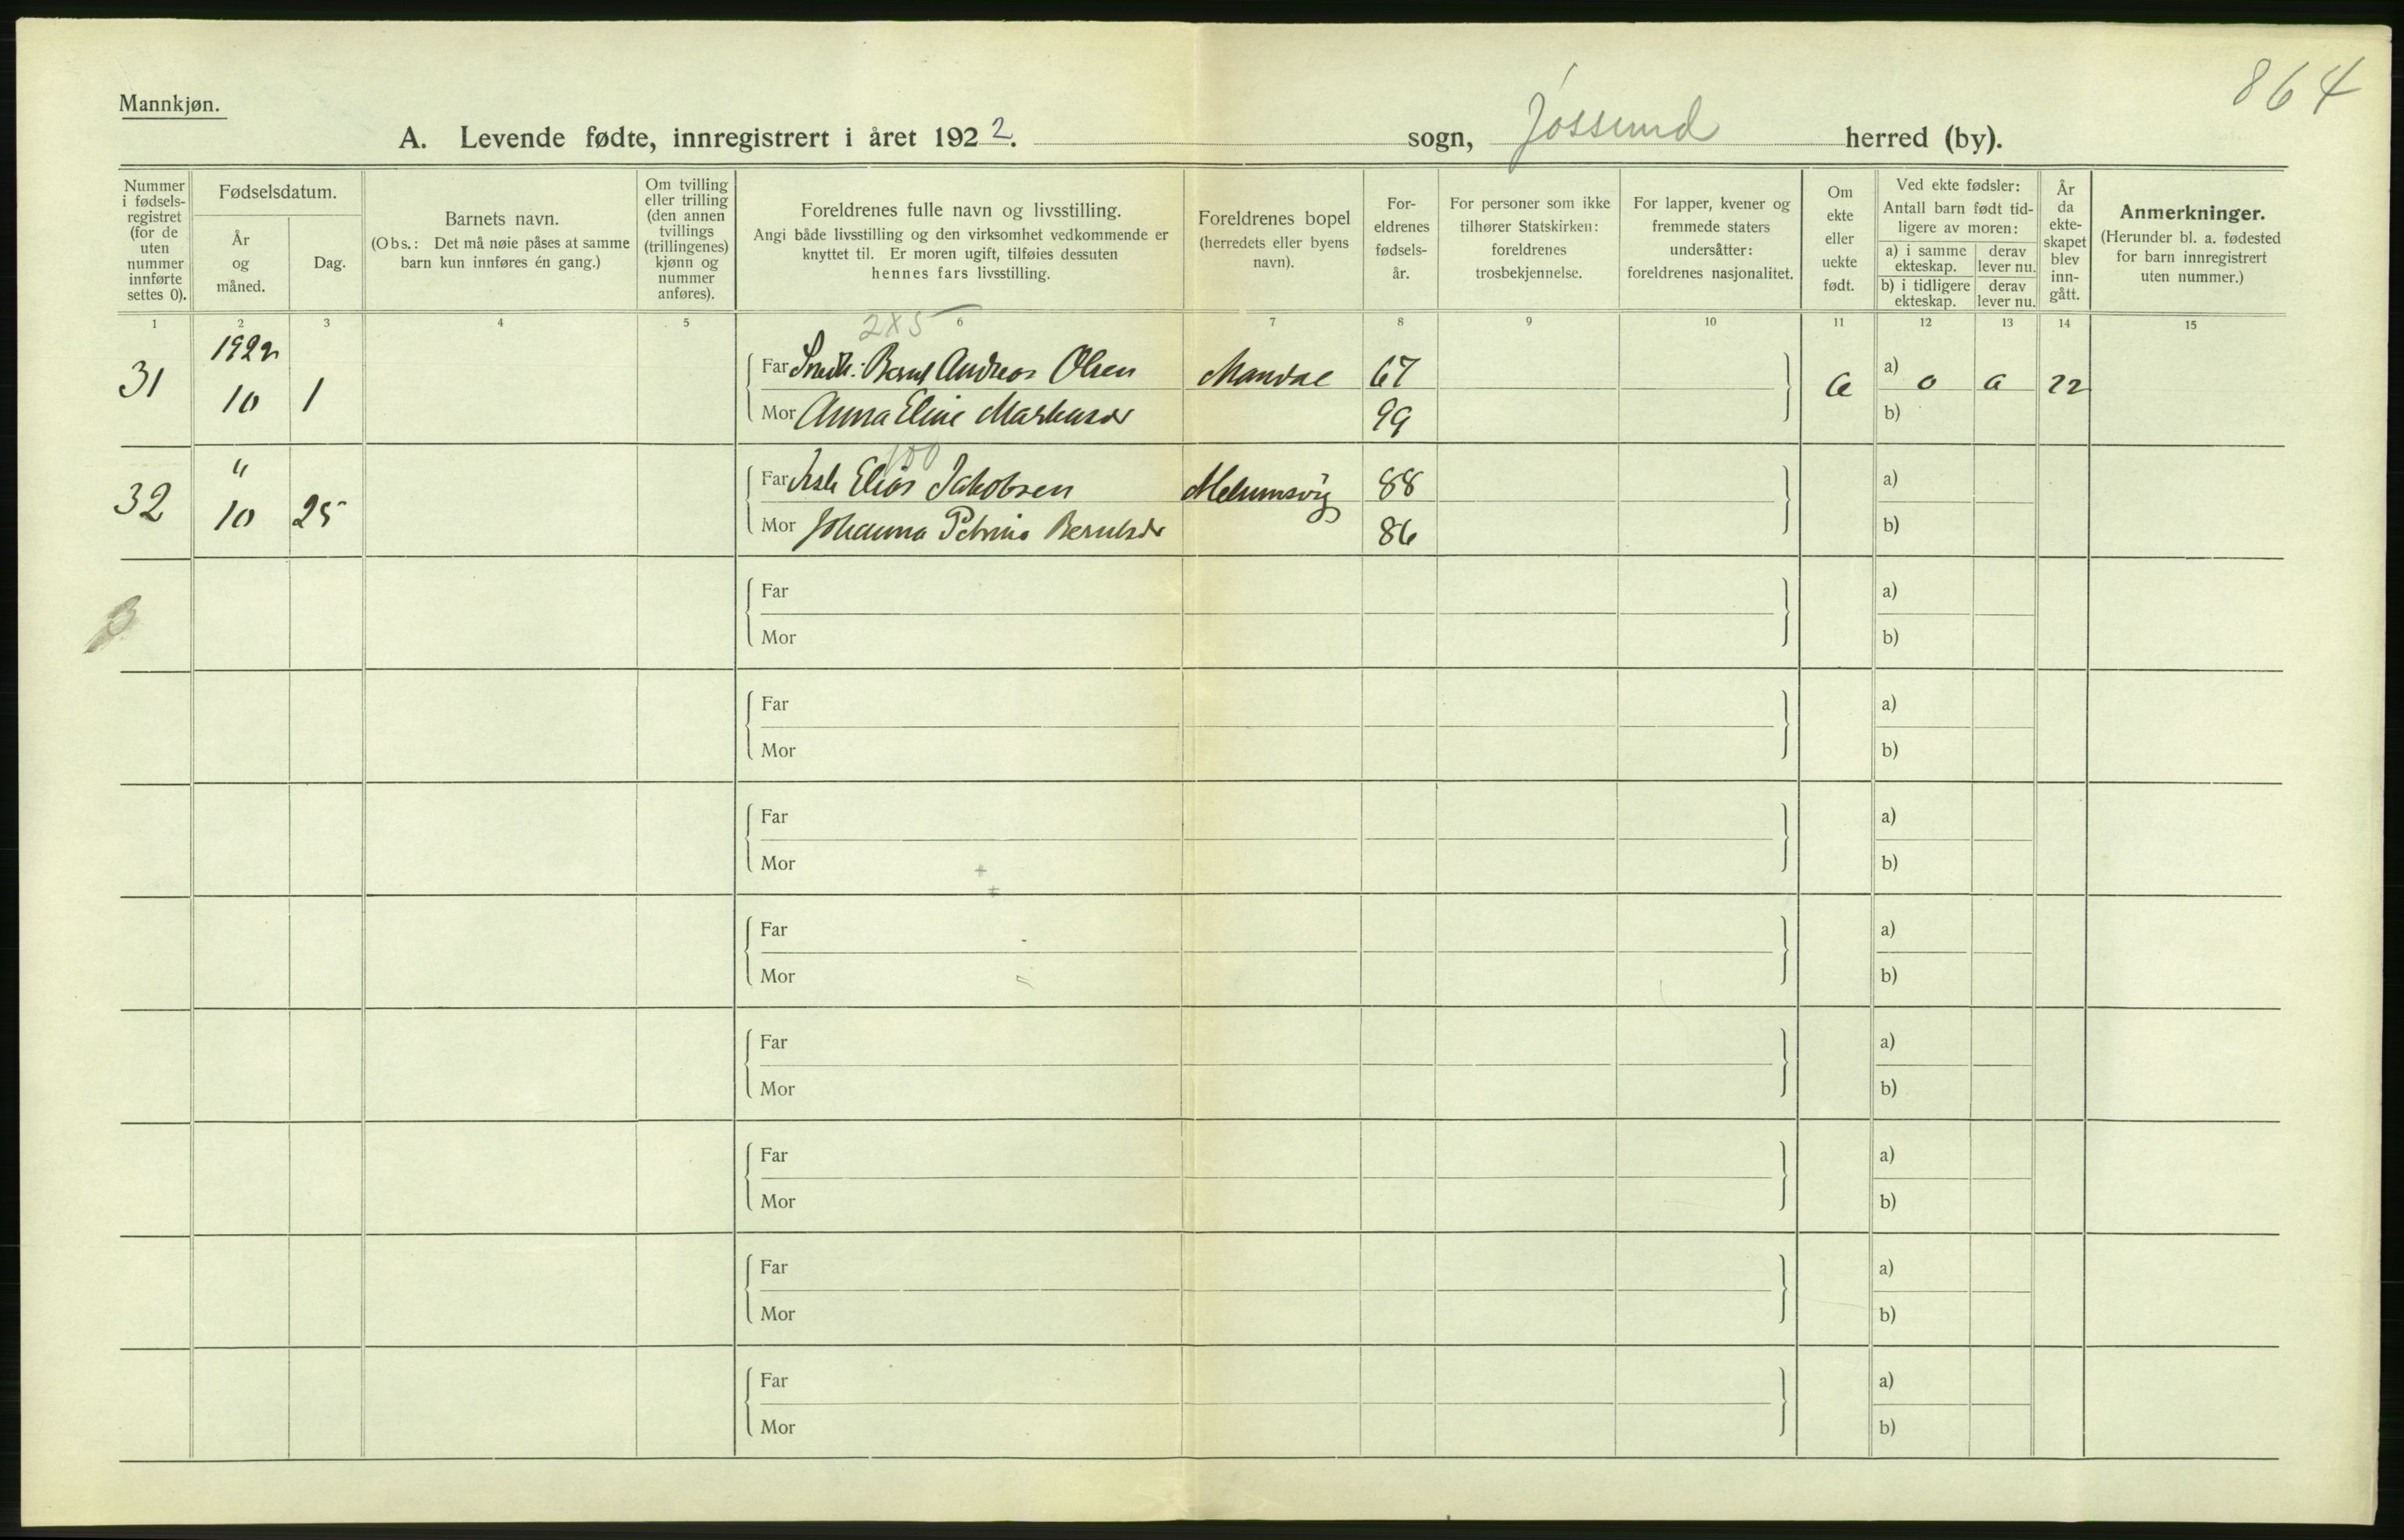 864
Mannkjøn.
A. Levende fødte, innregistrert i året 1922. sogn, Jøssund herred (by).
Nummer i fødsels-registret (for de uten nummer innførte settes 0).
Fødselsdatum.
År og måned.
Dag.
Barnets navn.
(Obs.: Det må nøie påses at samme barn kun innføres én gang.)
Om tvilling eller trilling (den annen tvillings (trillingenes) kjønn og nummer anføres).
Foreldrenes fulle navn og livsstilling.
Angi både livsstilling og den virksomhet vedkommende er knyttet til. Er moren ugift, tilføies dessuten hennes fars livsstilling.
Foreldrenes bopel (herredets eller byens navn).
For-eldrenes fødsels-år.
For personer som ikke tilhører Statskirken: foreldrenes trosbekjennelse.
For lapper, kvener og fremmede staters undersåtter: foreldrenes nasjonalitet.
Om ekte eller uekte født.
Ved ekte fødsler: Antall barn født tid-ligere av moren:
a) i samme ekteskap. derav lever nu.
b) i tidligere ekteskap. derav lever nu.
År da ekte-skapet blev inn-gått.
Anmerkninger.
(Herunder bl. a. fødested for barn innregistrert uten nummer.)
1 2 3 4 5 6 7 8 9 10 11 12 13 14 15
2x5
1922
31 10 1 Far Andreas Olsen Mandal 67 a) 0 22
Mor Anna Eline 99 b)
100
32 " 10 25 Far Elias Jakobsen 88 a)
Mor Johanna 86 b)
Far a)
Mor b)
Far a)
Mor b)
Far a)
Mor b)
Far a)
Mor b)
Far a)
Mor b)
Far a)
Mor b)
Far a)
Mor b)
Far a)
Mor b)